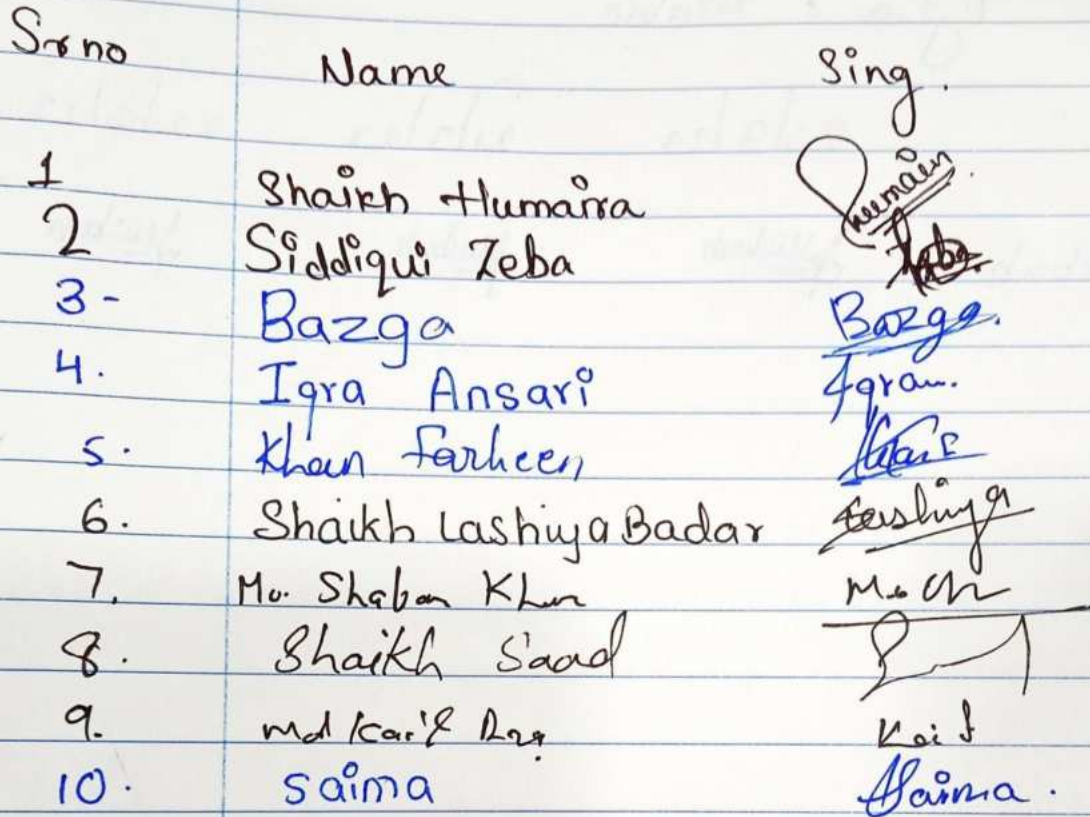 Sr no Name Sing.
1 Shaikh Humaira
2 Siddiqui Zeba
3 - Bazga Bazga.
4. Iqra Ansari Iqra
5. Khan Farheen
6. Shaikh Lashiya Badar Lashiya
7. Mo. Shaban Khan
8. Shaikh Saad
9. md Kaif Kaif
10. Saima Saima.